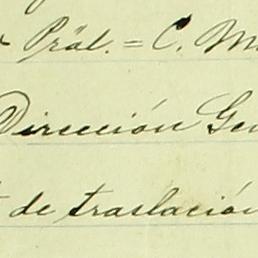 Pral. = C. M
Dirección Gen
de traslación